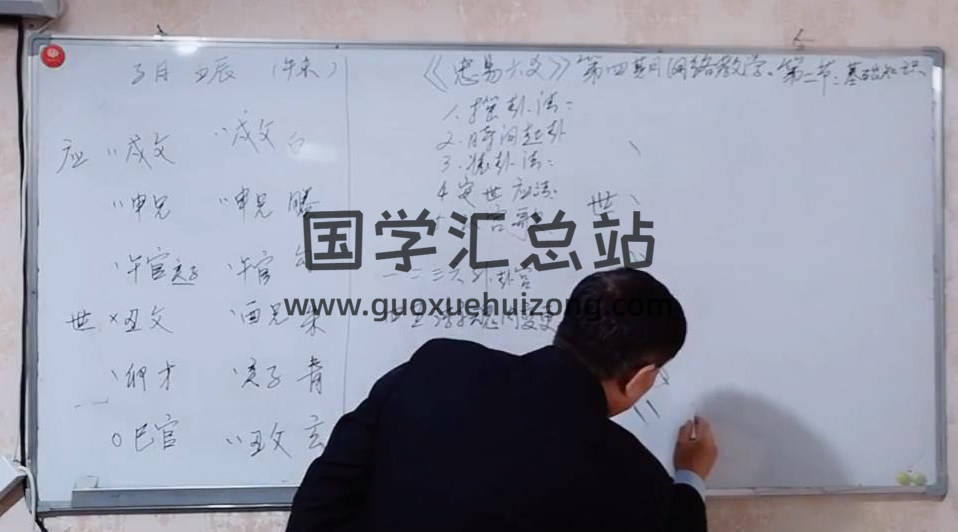 《忠易六爻》第四期网络教学。第二节：基础知识
月 丑辰（午未）
1.摇卦法：
2.时间起卦
3.装卦法：
4.定世应法：
一二三六外卦宫
应 戌父 戌父 白
申兄 申兄 腾
午官 亥子 午官
世 × 丑父 酉兄 朱
卯才 亥子 青
○ 巳官 丑父 玄
世
国学汇总站
www.guoxuehuizong.com